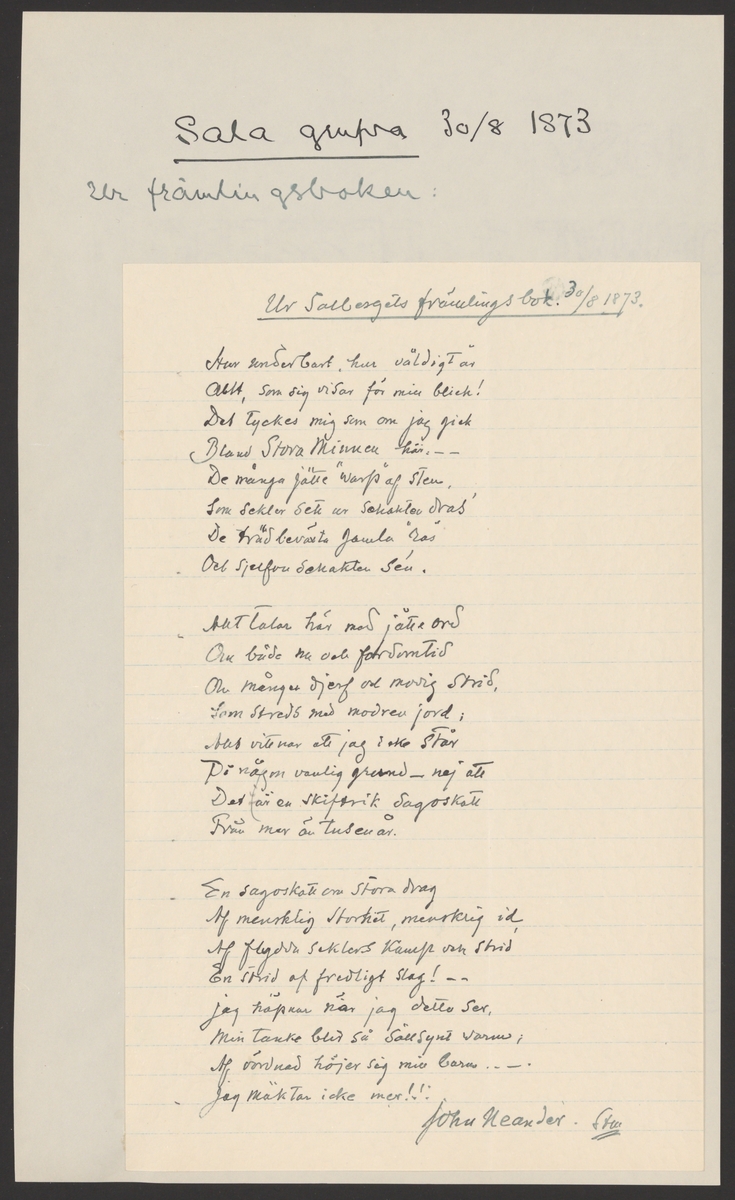 Sala grufva 30/8 1873
Ur främlingsboken:
Ur Salbergets främlingsbok. 30/8 1873.
Hur underbart, hur väldigt är
Allt, som sig visar för min blick!
Det tyckes mig som om jag gick
Bland Stora Minnen här. --
De många jätte "warp" af sten,
Som sekler sett ur schakten dras,
De trädbeväxta gamla "ras"
Och sjelfva schakten sén.
Allt talar här med jätte ord
Om både nu och fordomtid
Om mången djerf och modig strid,
Som streds med modren jord;
Allt vittnar att jag icke står
På någon vanlig grund – nej att
Det är en skiftrik sagoskatt
Från mer än tusen år.
En sagoskatt om stora drag
Af mensklig storhet, mensklig id,
Af flydda seklers kamp och strid
En strid af fredligt slag! --
Jag häpnar när jag detta ser,
Min tanke blir så sällsynt varm;
Af vördnad höjer sig min barm ..–.
Jag mäktar icke mer!!!
John Neander. Sthm